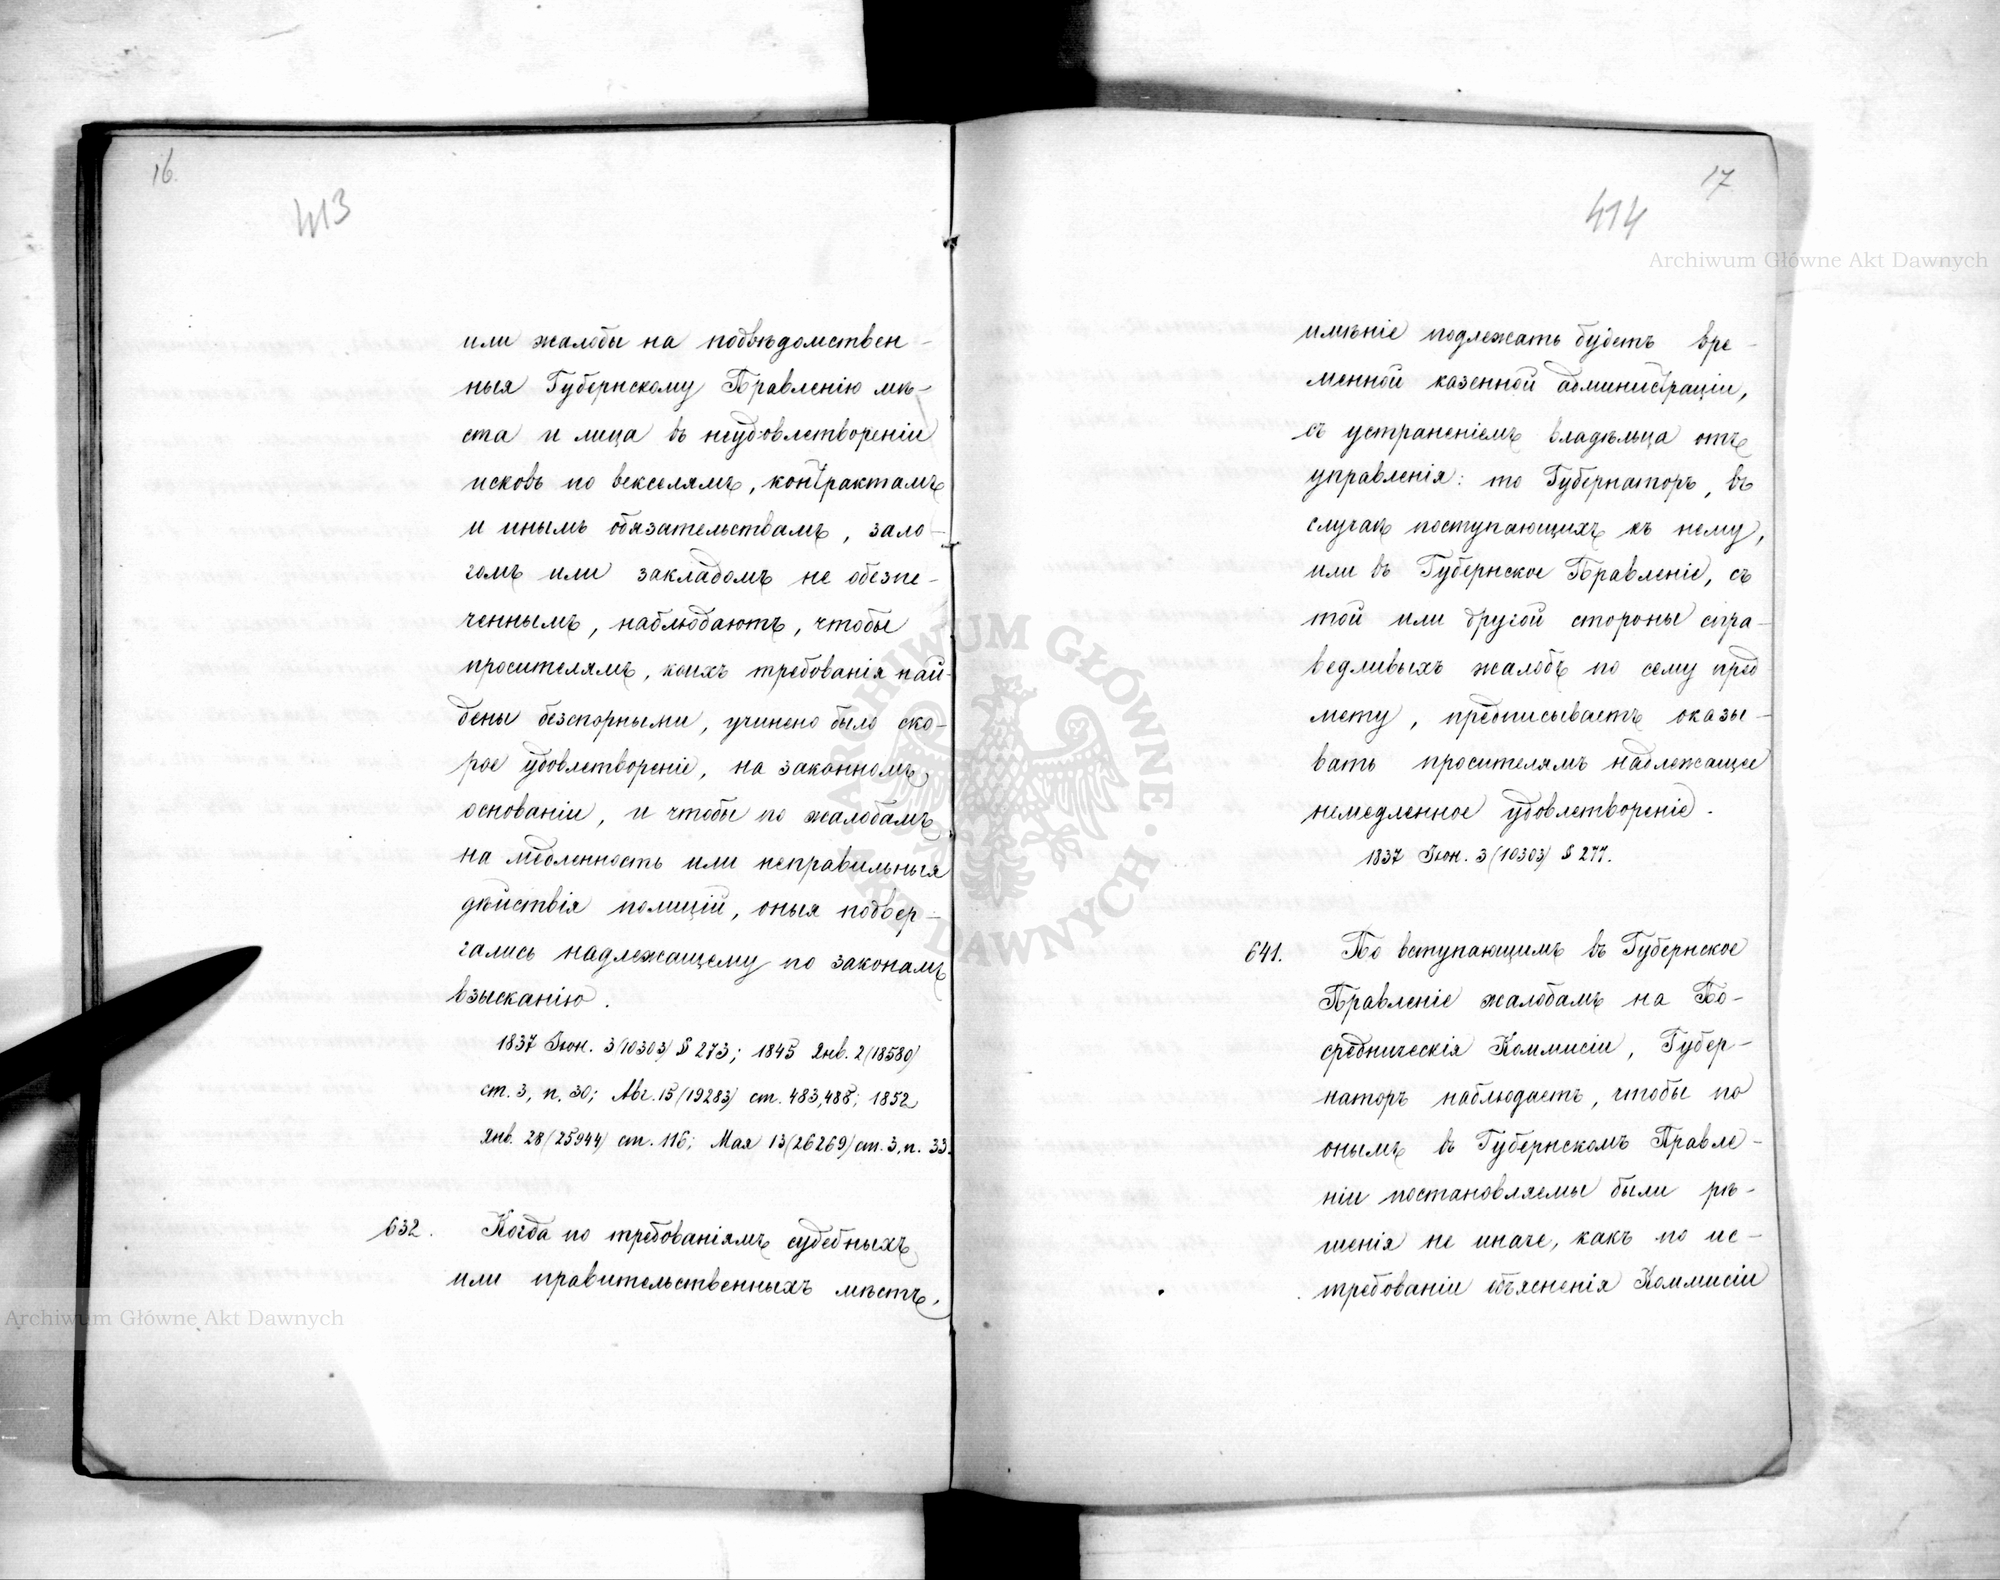 16.
413
или жалобы на подвѣдомствен-
ныя Губернскому Правленію мѣ-
ста и лица въ неудовлетвореніи
исковъ по векселямъ, контрактамъ
и инымъ обязательствамъ, зало-
гомъ или закладомъ не обезпе-
ченнымъ, наблюдаютъ, чтобы
просителямъ, коихъ требованія най-
дены безспорными, учинено было ско-
рое удовлетвореніе, на законномъ
основаніи, и чтобы по жалобамъ
на медленность или неправильныя
дѣйствія полицій, оныя подвер-
гались надлежащему по законамъ
взысканію.
1837 Іюн. 3 (10303) § 273; 1845 Янв. 2 (18580)
ст. 3, п. 30; Авг. 15 (19283) ст. 483,488; 1852
Янв. 28 (25944) ст. 116; Мая 13 (26269) ст. 3, п. 33.
632. Когда по требованіямъ судебныхъ
или правительственныхъ мѣстъ,
17
414
имѣніе подлежать будетъ вре-
менной казенной администраціи,
съ устраненіемъ владѣльца отъ
управленія: то Губернаторъ, въ
случаѣ поступающихъ къ нему,
или въ Губернское Правленіе, съ
той или другой стороны спра-
ведливыхъ жалобъ по сему пред
мету, предписываетъ оказы-
вать просителямъ надлежащее
немедленное удовлетвореніе.
1837 Іюн. 3 (10303) § 277.
641. По вступающимъ въ Губернское
Правленіе жалобамъ на По-
средническія Коммисіи, Губер-
наторъ наблюдаетъ, чтобы по
онымъ въ Губернскомъ Правле-
ніи постановляемы были рѣ-
шенія не иначе, какъ по ис-
требованіи объясненія Коммисіи
Archiwum Główne Akt Dawnych
Archiwum Główne Akt Dawnych
ARCHIWUM GŁÓWNE · AKT DAWNYCH ·